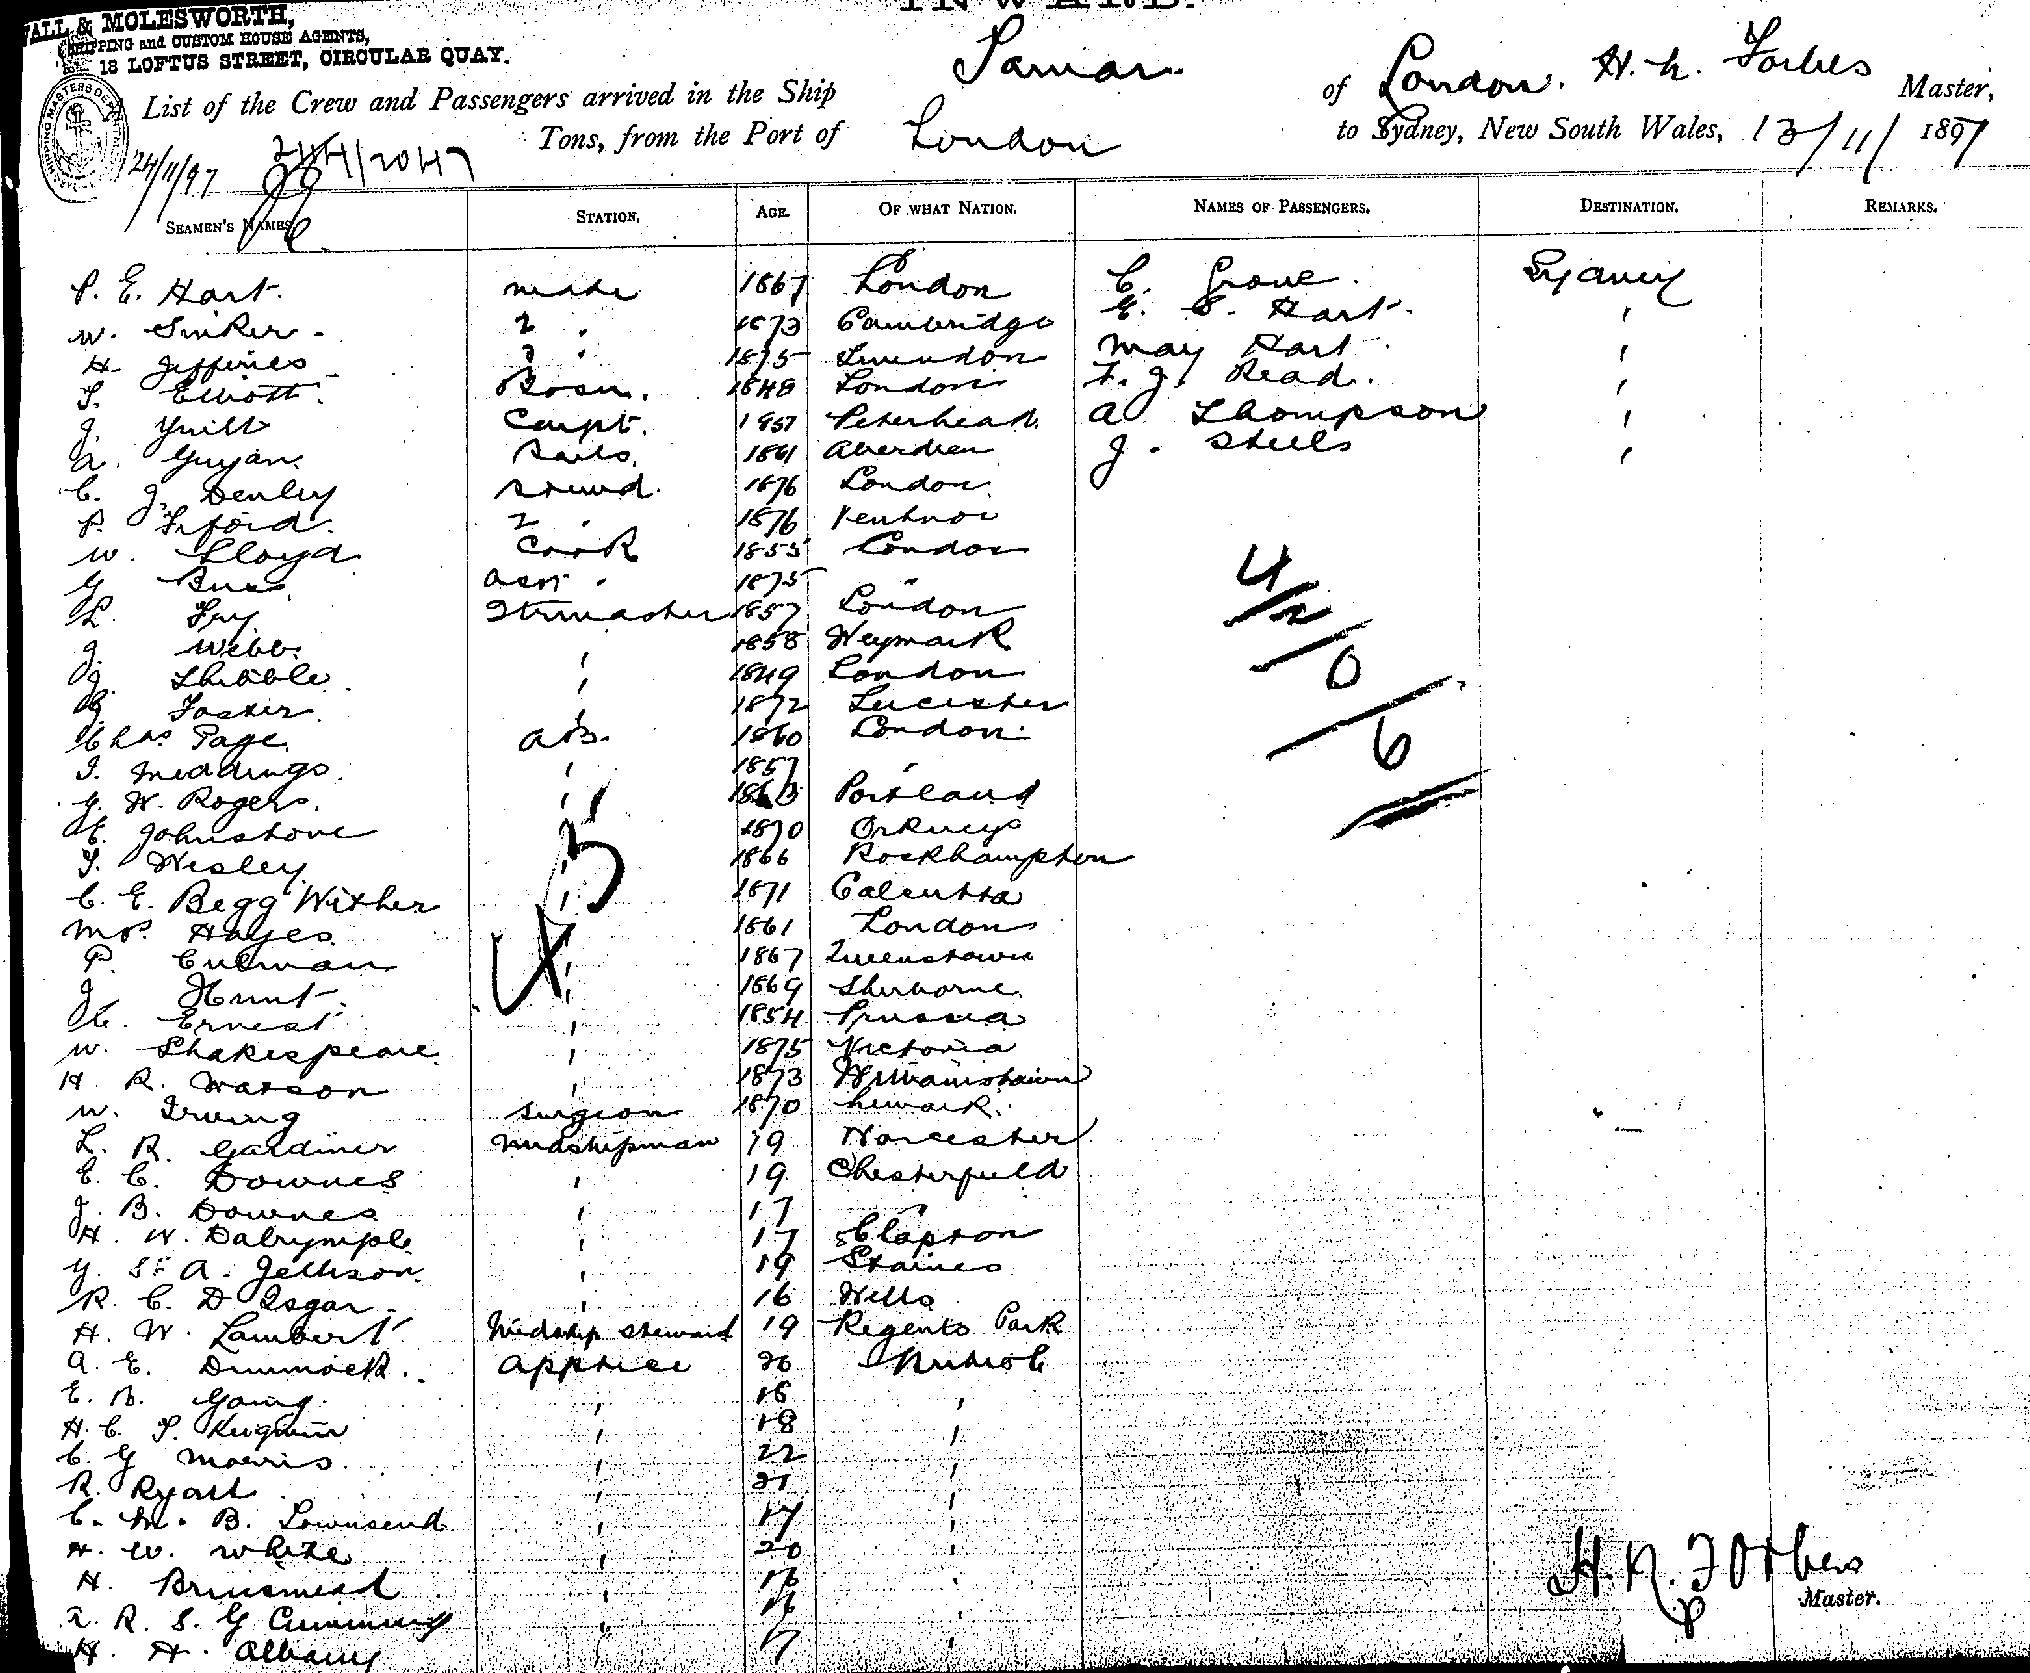 INWARD.
& MOLESWORTH,
SHIPPING and CUSTOM HOUSE AGENTS,
18 LOFTUS STREET, CIRCULAR QUAY.
List of the Crew and Passengers arrived in the Ship Samar of London. H. N. Forbes Master,
Tons, from the Port of London to Sydney, New South Wales, 13/11/1897
24/11/97
SEAMEN'S NAMES STATION. AGE. OF WHAT NATION. NAMES OF PASSENGERS. DESTINATION. REMARKS.
P. E. Hart. mate 1867 London C. Grove. Sydney
W. Sinker 2 " 1873 Cambridge E. S. Hart. "
H. Jefferies 3 " 1875 Swindon May Hart "
S. Elliott Bosn. 1848 London F. J. Read. "
J. Yuill Carpt. 1857 Peterhead A Thompson "
A. Guyan. Sails. 1861 Aberdeen J. Steels "
C. J. Denley Steward. 1876 London.
P. Ifford. 2 " 1876 Ventnor
W. Lloyd Cook 1855 London
G Buss asst " 1875 "
L. Fry 1857 London
J. Webb. " 1858
J. Thibble " 1849 London
G. Foster. " 1872 Leicester
Chas Page. AB. 1860 London.
J. Meddings. " 1857 "
G. W. Rogers. " 1863 Portland
E. Johnstone " 1870 Orkneys
T. Wesley. " 1866 Rockhampton
C. E. Begg Wither " 1871 Calcutta
Hayes " 1861 London
P. " 1867 Queenstown
J. Hunt. " 1869 Sherborne.
C. Ernest " 1854 Prussia
W. Shakespeare. " 1875 Victoria
H R. Watson " 1873 Williamstown
W. Irving surgeon 1870 Newark.
L. R. Gardiner Midshipman 19 Worcester
E. C. Downes " 19 Chesterfield
J. B. Downes " 17 "
H. W. Dalrymple " 17 Clapton
G. St A. Jellison. " 19 Staines
R. C. D Isgar. " 16 Wells
H. W. Lambert Midship steward 19 Regents Park
A. E. Dimmock. Apptice 20
E. B. Going. " 18 "
H. C. T. " 18 "
C. G Morris. " 22 "
R. Ryall " 21 "
C. M. B. Townsend " 17 "
H. W. White " 20 "
H. Brinsmead " 16 "
R. S. G Cumming " 16 "
H. H. Albany " 17 "
45
4/2/0/6
H. N. Forbes
Master.